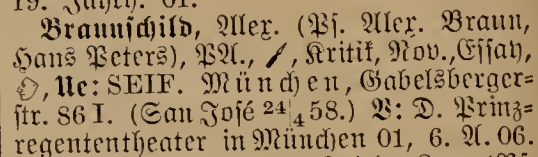 19. Jahrh. 01.
Braunschild, Alex. (Ps. Alex. Braun,
Hans Peters), PA., Kritik, Nov., Essay,
Ue: SEIF. München, Gabelsberger=
str. 86 I. (San José 24/4 58.) V: D. Prinz=
regententheater in München 01, 6. A. 06.